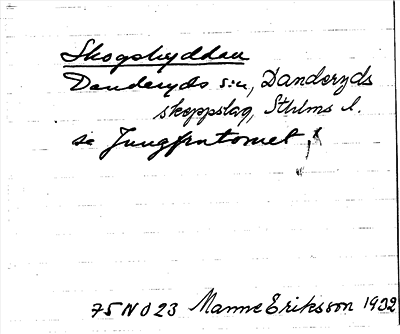 Skogshyddan
Danderyds s:n, Danderyds
skeppslag, Sthlms l.
se Jungfrutornet
75 NO 23 Manne Eriksson 1932